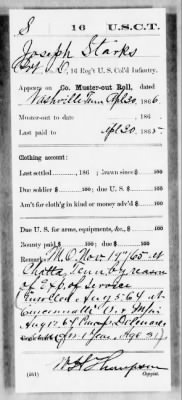 S 16 U.S.C.T.
Joseph Starks
Pvt, Co. C, 16 Reg't U. S. Col'd Infantry.
Appears on Co. Muster-out Roll, dated
Nashville Tenn Apl 30, 1866
Muster-out to date 186 .
Last paid to Apl 30, 1865.
Clothing account:
Last settled 186 ; drawn since $ 100
Due soldier $ 100; due U. S. $ 100
Am't for cloth'g in kind or money adv'd $ 100
Due U. S. for arms, equipments, &c., $ 100
Bounty paid $ 100; due $ 100
Remarks: M.O. Nov 1st /65 at
Chatta, Tenn by reason
of Exp. of Service
Enrolled Aug 5. 64 at
Cincinnatti O. & M.I.
Aug 17. 64
for 1 Year, Age 21
W H Thompson
(361) Copyist.